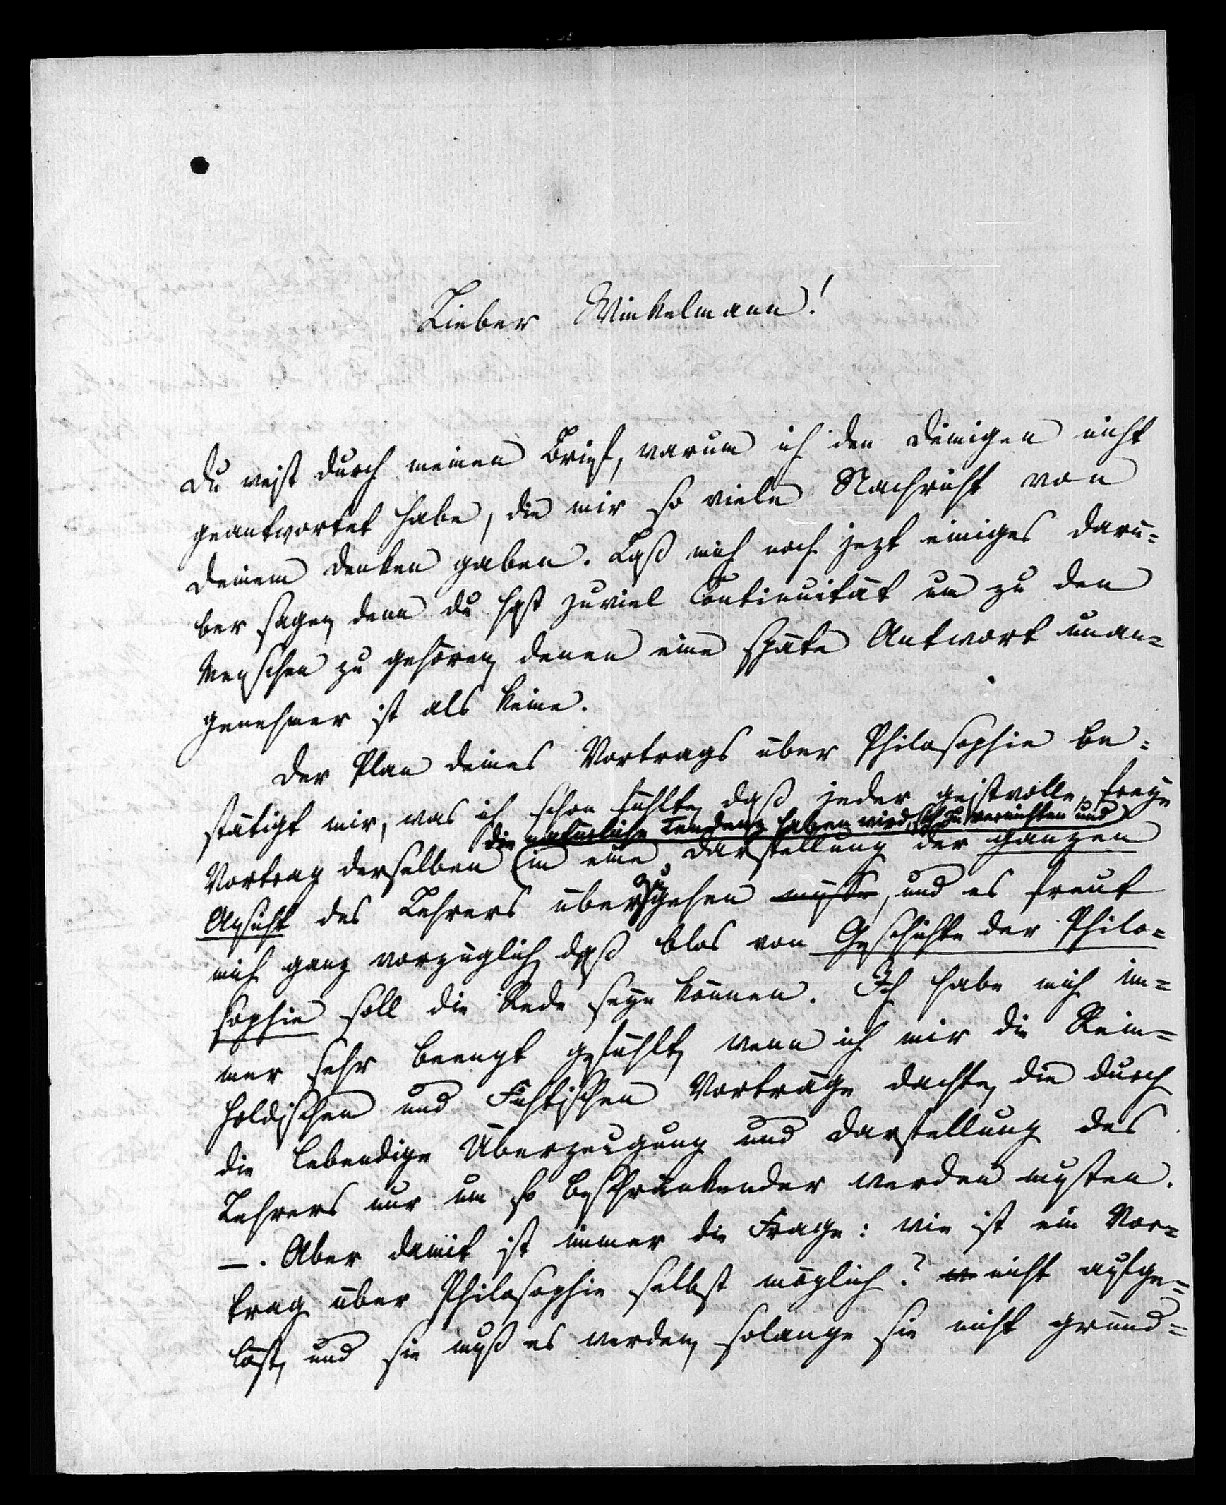 Lieber Winkelmann!
Du weist durch meinen Brief, warum ich den deinigen nicht
geantwortet habe, die mir so viele Nachricht von
deinem Denken gaben. Laß mich noch jezt einiges darü-
ber sagen, denn du hast zuviel Continuität um zu den
Menschen zu gehören, denen eine späte Antwort unan-
genehmer ist als keine.
Der Plan deines Vortrags über Philosophie be-
stätigt mir, was ich schon fühlte, daß jeder geistvolle, freye
die natürliche Tendenz haben wird, sich zu vernichten und
Vortrag derselben in eine Darstellung der ganzen
Ansicht des Lehrers überzugehen müsse, und es freut
mich ganz vorzüglich, daß blos von Geschichte der Philo-
sophie soll die Rede seyn können. Ich habe mich im-
mer sehr beengt gefühlt, wenn ich mir die Rein-
holdischen und Fichtischen Vorträge dachte, die durch
die lebendige Überzeugung und Darstellung des
Lehrers nur um so beschränkender werden musten.
—. Aber damit ist immer die Frage: wie ist ein Vor-
trag über Philosophie selbst möglich? nicht aufge-
löst, und sie muß es werden, solange sie nicht gründ-